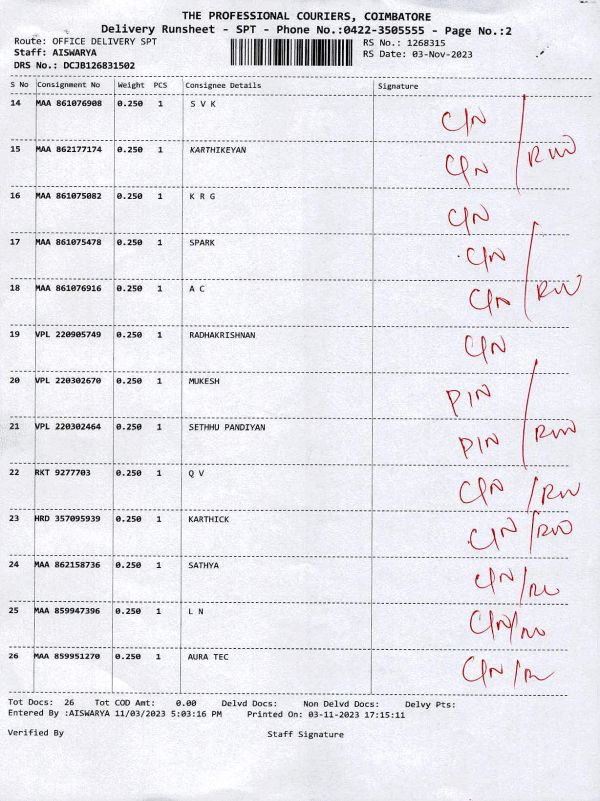 THE PROFESSIONAL COURIERS, COIMBATORE
Delivery Runsheet - SPT - Phone No.:0422-3505555 - Page No.:2
Route: OFFICE DELIVERY SPT RS No.: 1268315
Staff: AISWARYA RS Date: 03-Nov-2023
DRS No.: DCJB126831502
S No Consignment No Weight PCS Consignee Details Signature
14 MAA 861076908 0.250 1 S V K C/N
15 MAA 862177174 0.250 1 KARTHIKEYAN C/N RW
16 MAA 861075082 0.250 1 K R G C/N
17 MAA 861075478 0.250 1 SPARK C/N
18 MAA 861076916 0.250 1 A C C/N RW
19 VPL 220905749 0.250 1 RADHAKRISHNAN C/N
20 VPL 220302670 0.250 1 MUKESH PIN
21 VPL 220302464 0.250 1 SETHHU PANDIYAN PIN RW
22 RKT 9277703 0.250 1 Q V C/N /RW
23 HRD 357095939 0.250 1 KARTHICK C/N /RW
24 MAA 862158736 0.250 1 SATHYA C/N
25 MAA 859947396 0.250 1 L N C/N
26 MAA 859951270 0.250 1 AURA TEC C/N
Tot Docs: 26 Tot COD Amt: 0.00 Delvd Docs: Non Delvd Docs: Delvy Pts:
Entered By :AISWARYA 11/03/2023 5:03:16 PM Printed On: 03-11-2023 17:15:11
Verified By Staff Signature